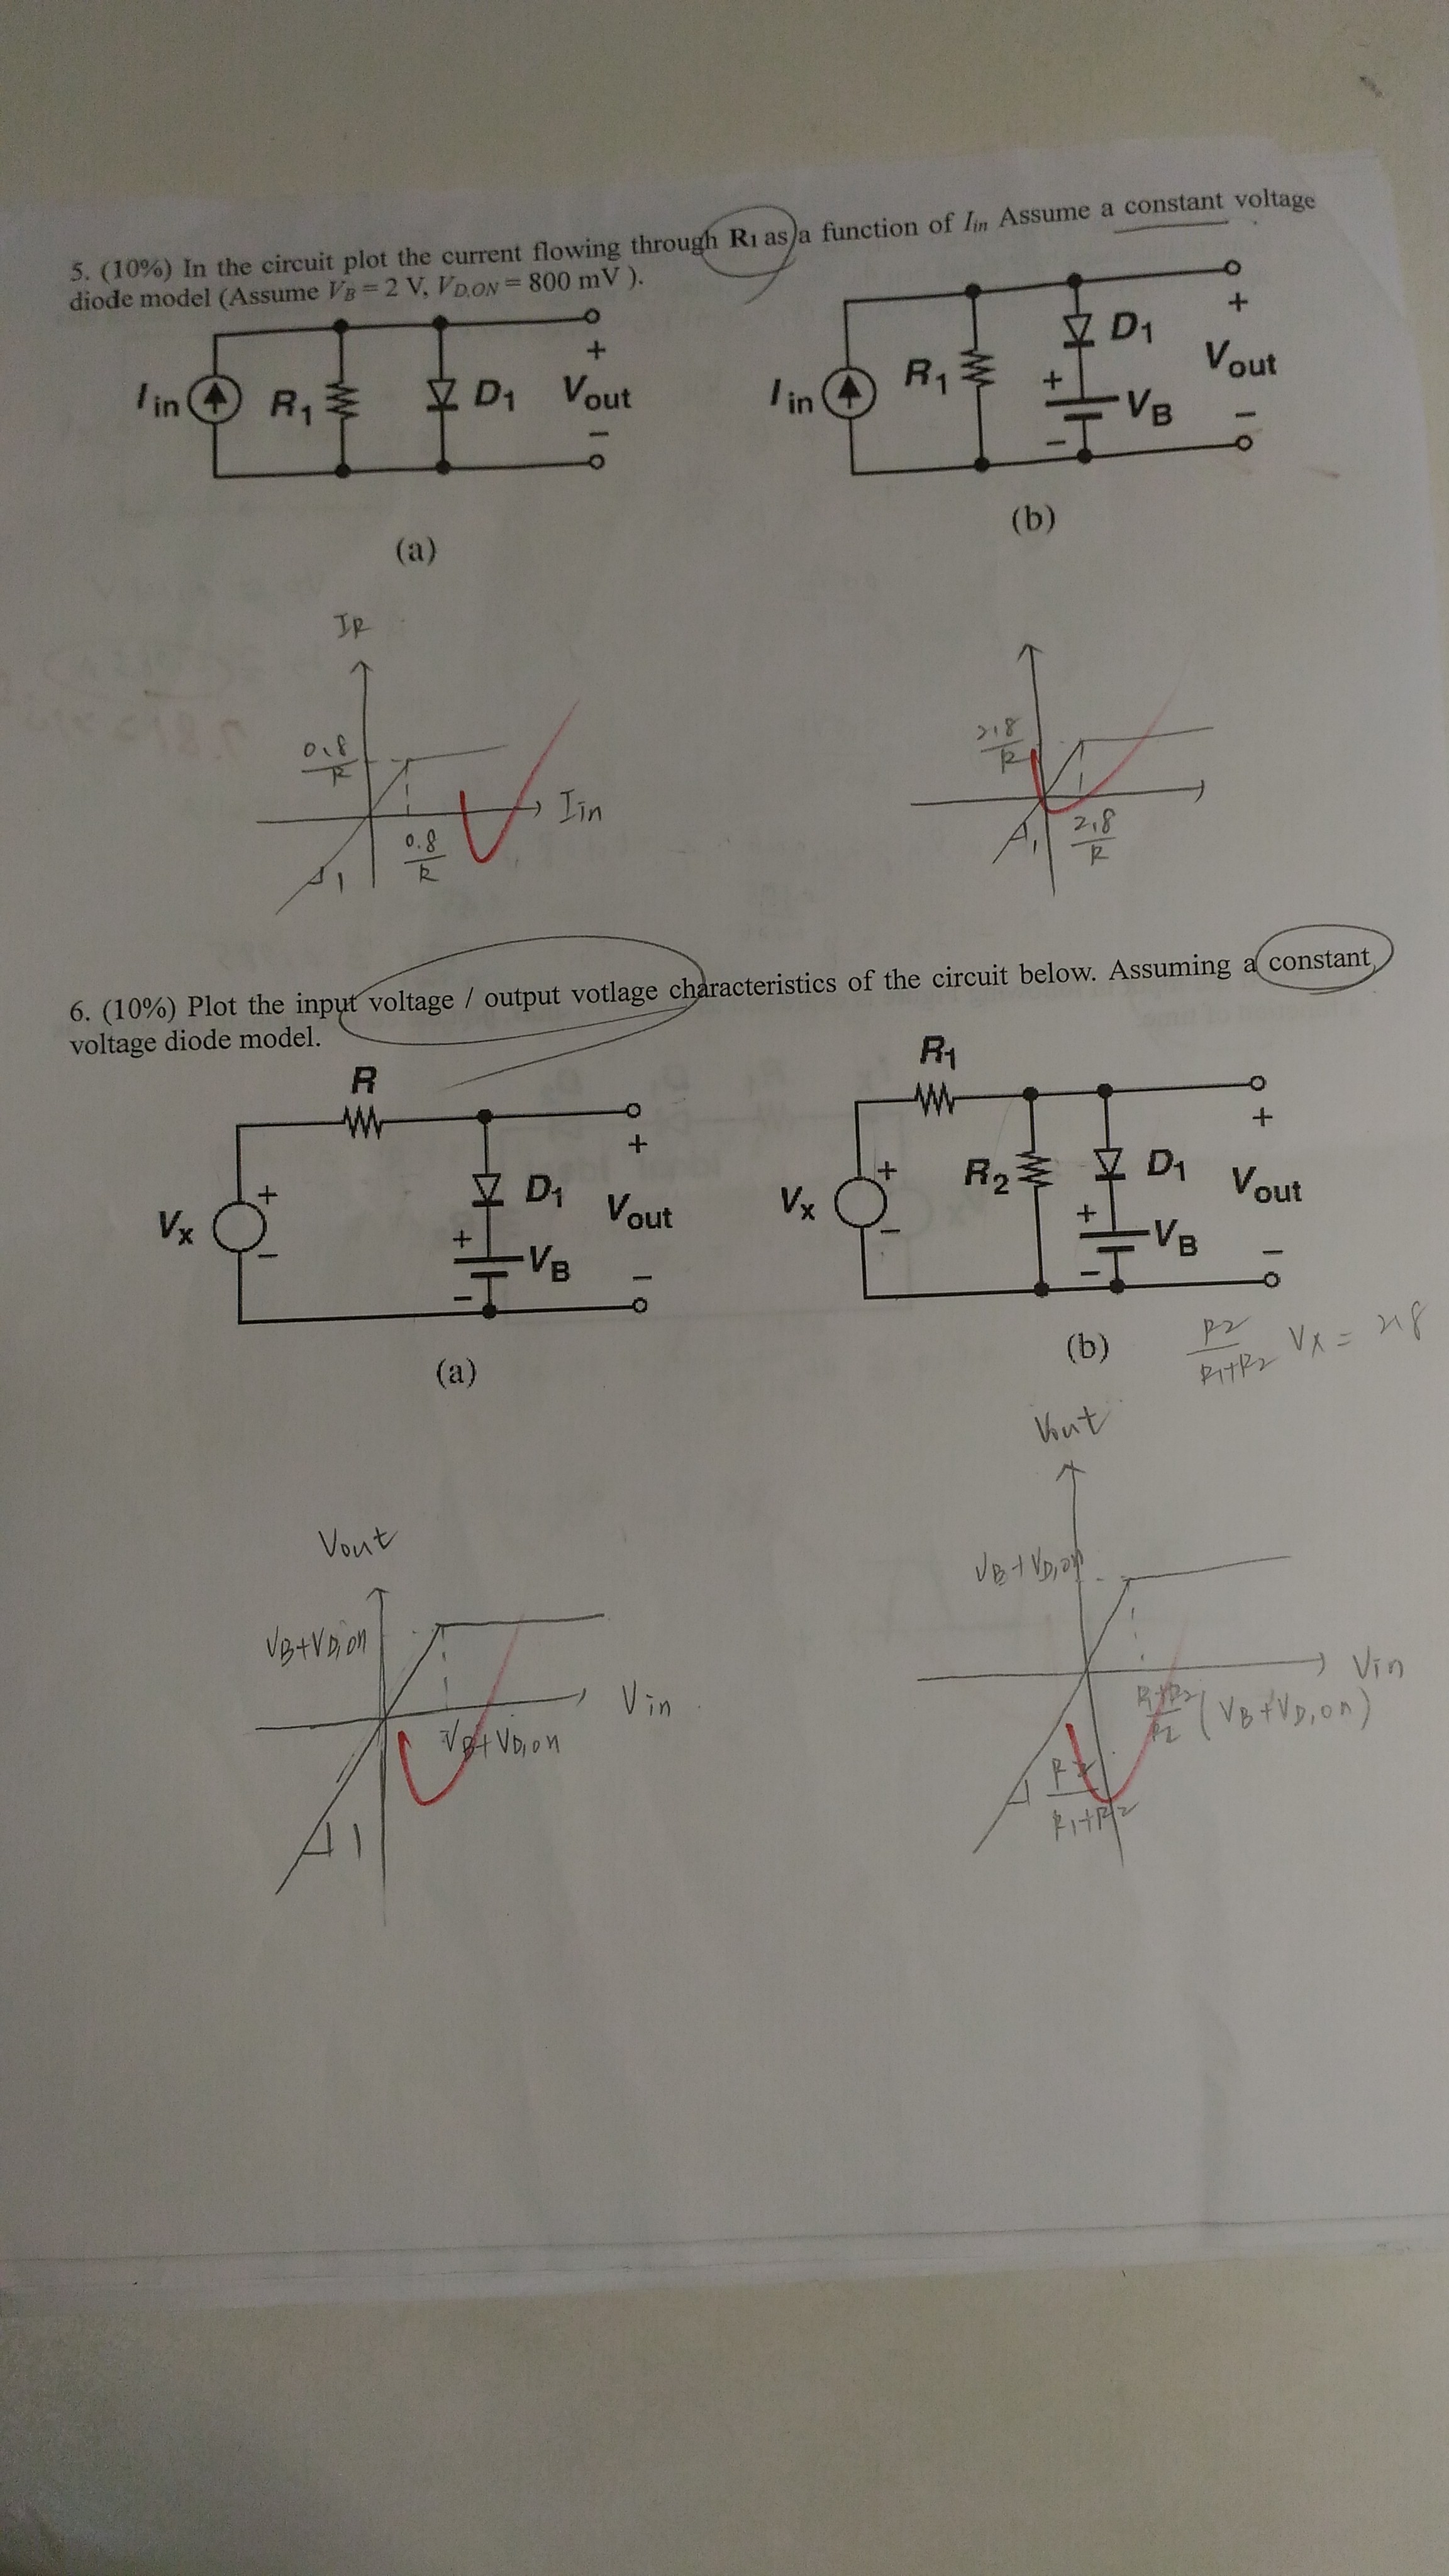 5. (10%) In the circuit plot the current flowing through R1 as a function of Iin Assume a constant voltage
diode model (Assume VB = 2 V, VD,ON = 800 mV ).
Iin R1 D1 + Vout −
(a)
Iin R1 D1 + VB − + Vout −
(b)
IR
0.8/R
Iin
0.8/R
1
2.8/R
2.8/R
1
6. (10%) Plot the input voltage / output votlage characteristics of the circuit below. Assuming a constant
voltage diode model.
R
Vx + − D1 + VB − + Vout −
(a)
R1
Vx + − R2 D1 + VB − + Vout −
(b)
R2/R1+R2 Vx = 2.8
Vout
VB+VD,on
Vin
VB+VD,on
1
Vout
VB+VD,on
Vin
R1+R2/R2 (VB+VD,on)
R2/R1+R2